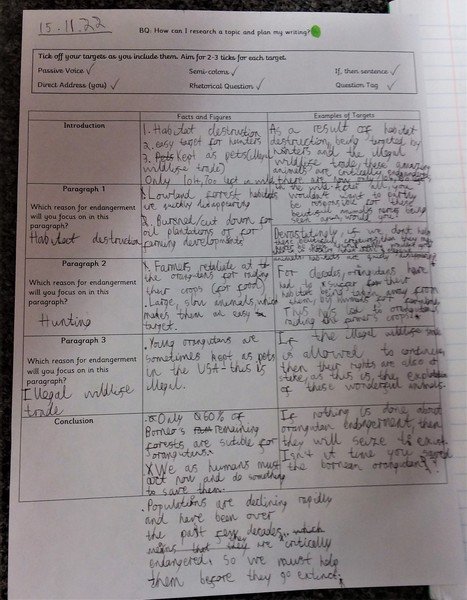 15.11.22
BQ: How can I research a topic and plan my writing?
Tick off your targets as you include them. Aim for 2-3 ticks for each target.
Passive Voice ✓ Semi-colons ✓ If, then sentence ✓
Direct Address (you) ✓ Rhetorical Question ✓ Question Tag ✓
Facts and Figures Examples of Targets
Introduction
1. Habitat destruction
2. easy target for hunters
3. Pets Kept as pets (illegal
wildlife trade)
Only 104,700 left in wild
As a result of habitat
destruction, being targeted by
hunters and the illegal
wildlife trade, these amazing
animals are critically endangered
there are now only
in the wild. After all, you
wouldn't want to be
responsible for these
beautiful animals
seen would you?
Paragraph 1
Which reason for endangerment
will you focus on in this
paragraph?
Habitat destruction
Lowland forest habitats
are quickly disappearing
2. Burned/cut down for
oil plantations or for
farming developments
Devastatingly, if we don't help
these beautiful creatures then they
animals habitats are quickly
Paragraph 2
Which reason for endangerment
will you focus on in this
paragraph?
Hunting
1. Farmers retaliate at
the orangutans for raiding
their crops (for food)
Large, slow animals, which
makes them an easy
target.
For decades, orangutans have
had to suffer for their
habitats being taken away from
them, by humans for farming.
This has led to orangutans
raiding the farmer's crops.
Paragraph 3
Which reason for endangerment
will you focus on in this
paragraph?
Illegal wildlife
trade
Young orangutans are
sometimes kept as pets
in the USA - this is
illegal.
If the illegal wildlife trade
is allowed to continue,
then their rights are also at
stake; this is the exploitation
of these wonderful animals.
Conclusion
Only 60% of
Borneo's remaining
forests are suitble for
orangutans.
We as humans must
act now and do something
to save them.
Populations are declining rapidly
and have been over
the past few decades which
means that they are critically
endangered. So we must help
them before they go extinct.
If nothing is done about
orangutan endangerment, then
they will seize to exist.
Isn't it time you saved
the bornean orangutan?